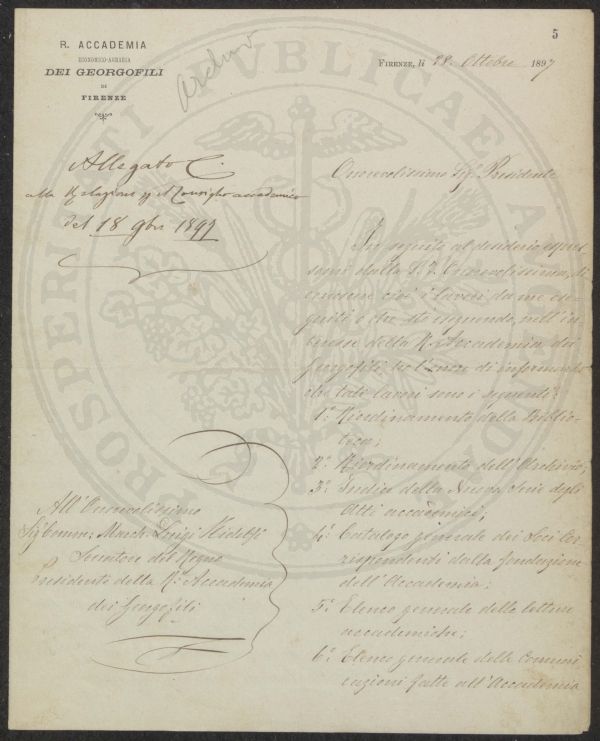 5
R. ACCADEMIA
ECONOMICO-AGRARIA
DEI GEORGOFILI
DI
FIRENZE
Archivio
FIRENZE, li 28. Ottobre 1897
Allegato C.
alla Relazione Consiglio accademico
del 18 9bre 1897
Onorevolissimo Sigr. Presidente
In seguito al desiderio espres-
somi dalla S. V. Onorevolissima, di
conoscere cioè i lavori da me ese-
guiti e che sto eseguendo nell'in-
teresse della R. Accademia dei
Georgofili, ho l'onore di informarla
che tali lavori sono i seguenti:
1º. Riordinamento della Biblio-
teca;
2º. Riordinamento dell'Archivio;
3º. Indice della Nuova Serie degli
Atti accademici;
4º. Catalogo generale dei Soci Cor-
rispondenti dalla fondazione
dell'Accademia;
5º. Elenco generale delle letture
accademiche;
6º. Elenco generale delle Comuni
cazioni fatte all'Accademia
All'Onorevolissimo
Sig. Comm: March. Luigi Ridolfi
Senatore del Regno
Presidente della R. Accademia
dei Georgofili
PROSPERITATI PUBLICAE AUGENDAE